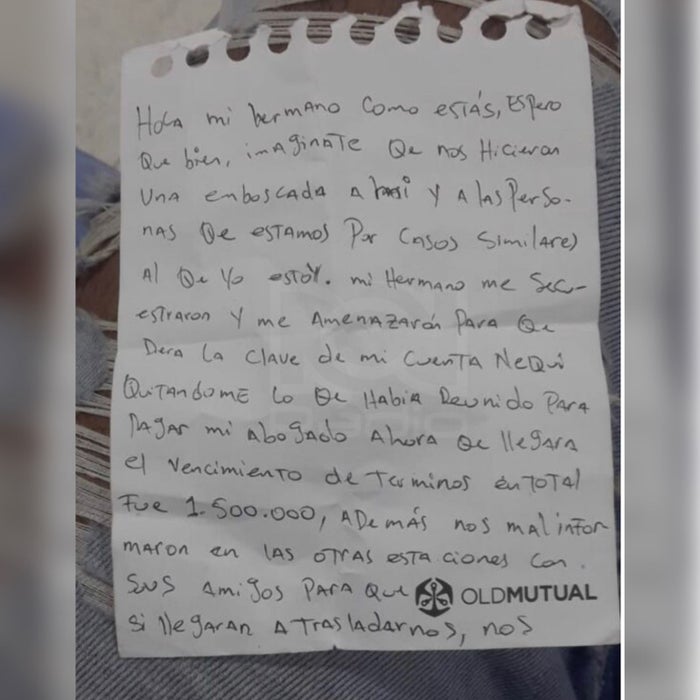 Hola mi hermano como estás, Espero
Que bien, imaginate Qe nos Hicieron
Una emboscada a mi y a las Perso-
nas Qe estamos Por casos similares
Al Qe Yo estoy. mi Hermano me Secu-
estraron y me Amenazarón Para Qe
Dera la clave de mi cuenta NeQui
Quitandome lo Qe Habia Reunido Para
Pagar mi Abogado Ahora Qe llegara
el vencimiento de terminos en total
Fue 1.500.000, ADemás nos mal infor-
maron en las otras estaciones con
sus amigos Para que
OLDMUTUAL
si llegaran a trasladarnos, nos